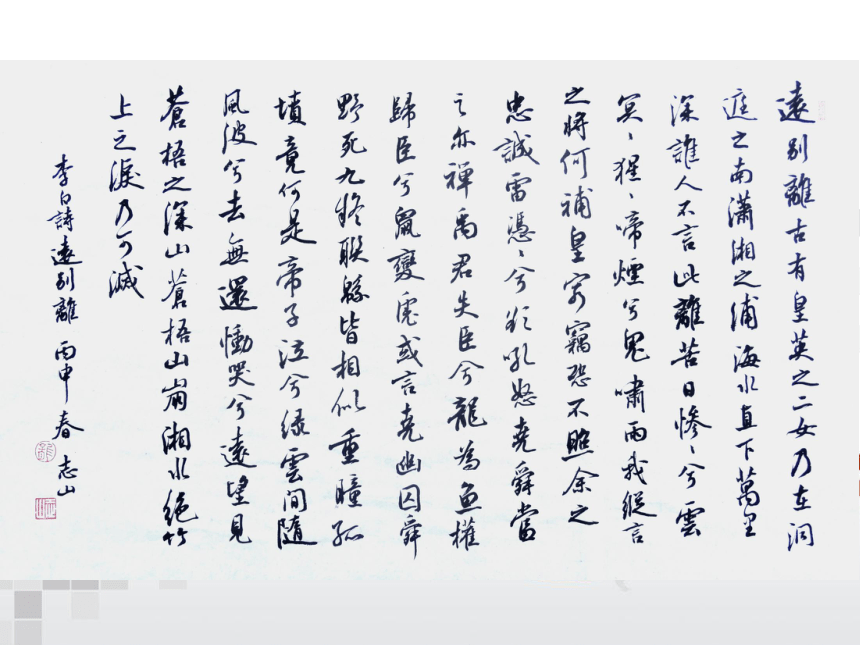 遠別離古有皇英之二女乃在洞
庭之南瀟湘之浦海水直下萬里
深誰人不言此離苦日慘〻兮雲
冥〻猩〻啼煙兮鬼嘯雨我縱言
之將何補皇穹竊恐不照余之
忠誠雷憑〻兮欲吼怒堯舜當
之亦禪禹君失臣兮龍為魚權
歸臣兮鼠變虎或言堯幽囚舜
野死九疑聯緜皆相似重瞳孤
墳竟何是帝子泣兮綠雲間隨
風波兮去無還慟哭兮遠望見
蒼梧之深山蒼梧山崩湘水絕竹
上之淚乃可滅
李白詩遠別離 丙申春 志山